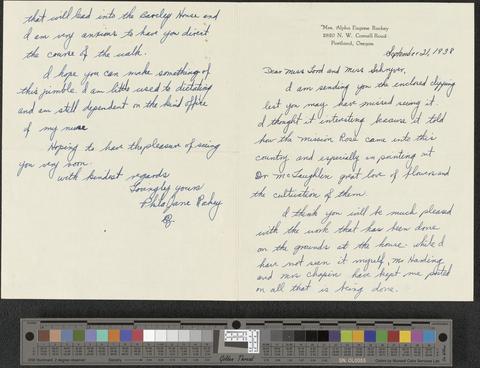 that will lead into the Barclay House and
I am very anxious to have you direct
the course of the walk.
I hope you can make something of
this jumble. I am little used to dictating
and am still dependent on the kind office
of my nurse
Hoping to have the pleasure of seeing
you very soon.
with kindest regards
Lovingley yours
Phila Jane Rockey
Mrs. Alpha Eugene Rockey
2920 N. W. Cornell Road
Portland, Oregon
September 21, 1938
Dear Miss Lord and Miss Schryver,
I am sending you the inclosed clipping
lest you may have missed seeing it.
I thought it interesting because it told
how the mission Rose came into this
country and especially in pointing out
Dr McLaughlin great love of flowers and
the cultivation of them.
I think you will be much pleased
with the work that has been done
on the grounds at the house. while I
have not seen it myself, Mr Harding
and mrs chapin have kept me posted
on all that is being done.
Golden Thread